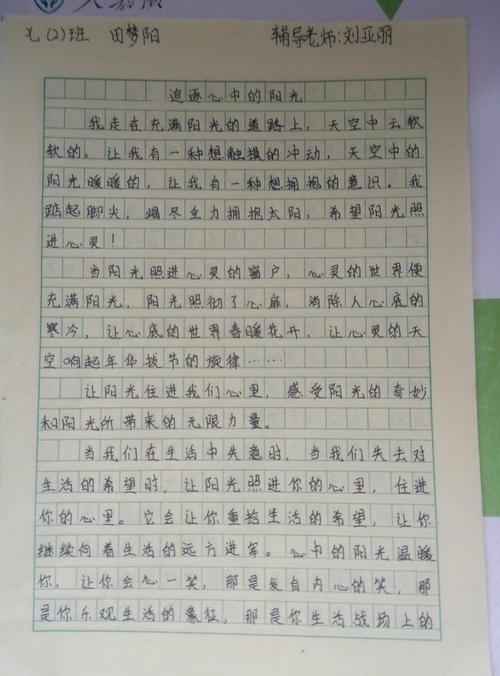 七(2)班 田梦阳 辅导老师:刘亚丽
追逐心中的阳光
我走在充满阳光的道路上，天空中云软
软的，让我有一种想触摸的冲动，天空中的
阳光暖暖的，让我有一种想拥抱的意识。我
踮起脚尖，竭尽全力拥抱太阳，希望阳光照
进心灵！
当阳光照进心灵的窗户，心灵的世界便
充满阳光，阳光照彻了心扉，消除人心底的
寒冷，让心底的世界春暖花开，让心灵的天
空响起年华拔节的旋律……
让阳光住进我们心里，感受阳光的奇妙
和阳光所带来的无限力量。
当我们在生活中失意时，当我们失去对
生活的希望时，让阳光照进你的心里，住进
你的心里。它会让你重拾生活的希望，让你
继续向着生活的远方进军。心中的阳光温暖
你，让你会心一笑，那是发自内心的笑，那
是你乐观生活的象征，那是你生活战场上的